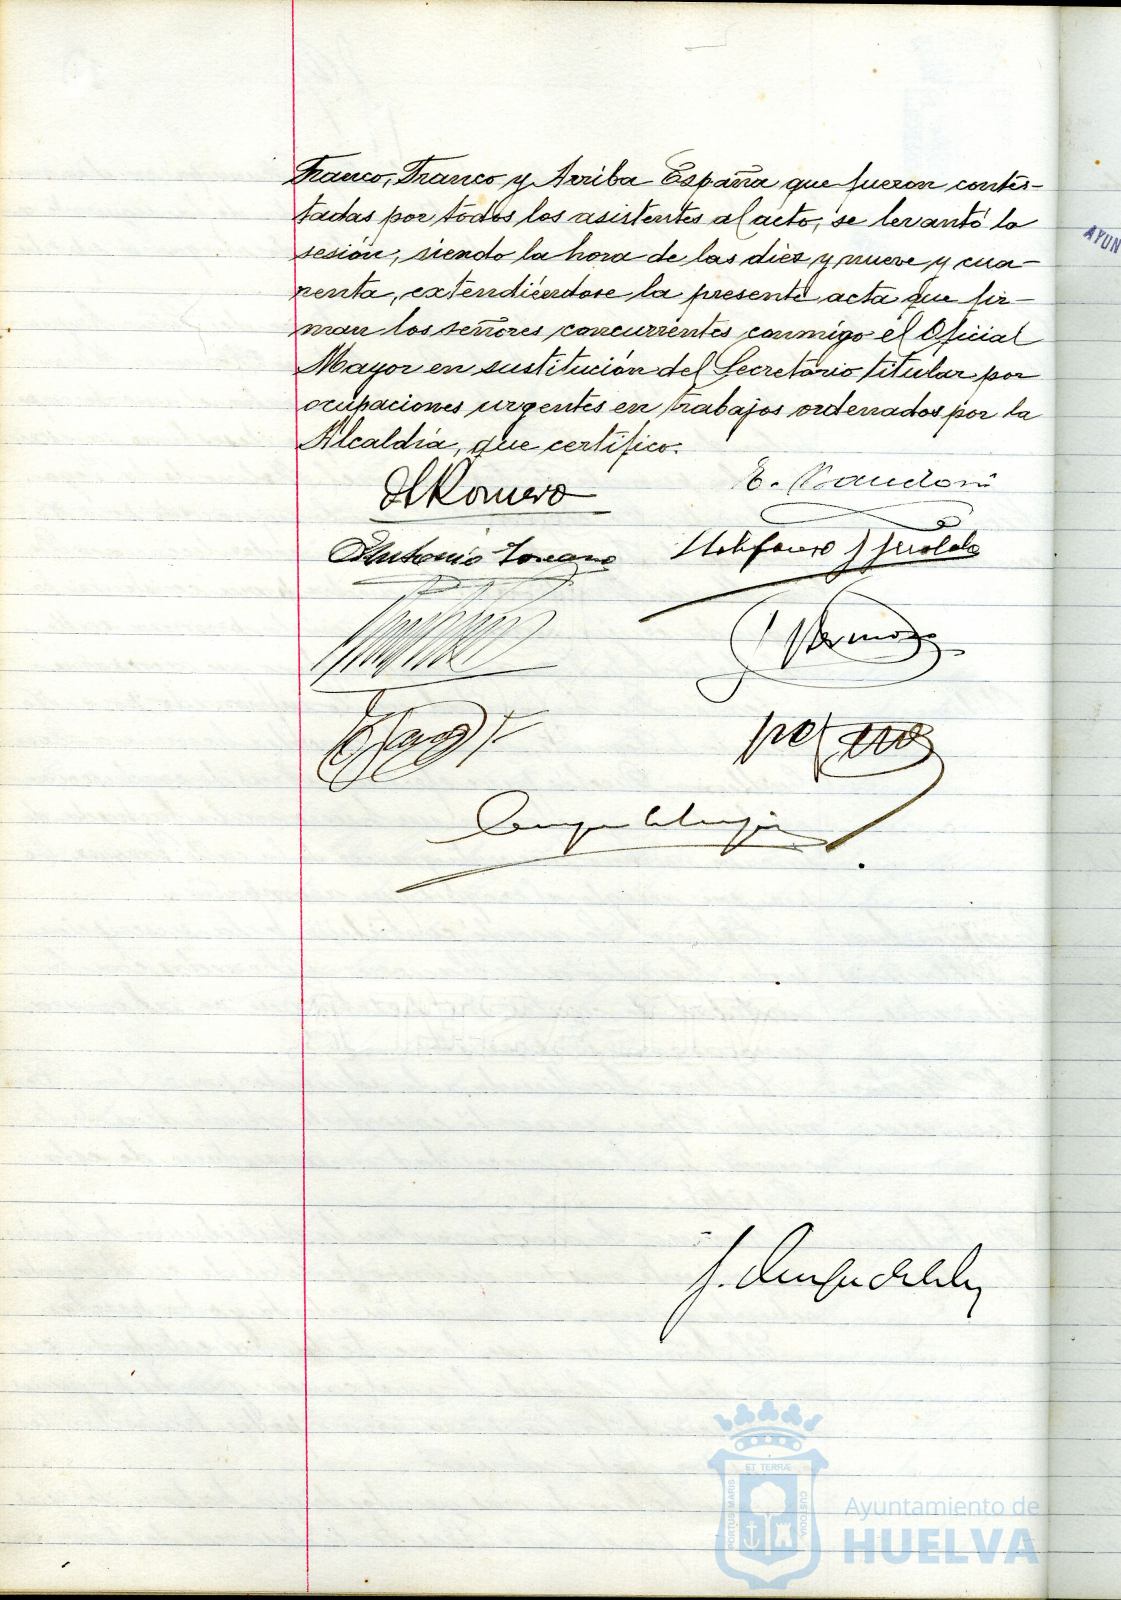 Franco, Franco y Arriba España que fueron contes-
tadas por todos los asistentes al acto, se levantó la
sesión, siendo la hora de las diez y nueve y cua-
renta, extendiéndose la presente acta que fir-
man los señores concurrentes conmigo el Oficial
Mayor en sustitución del Secretario titular por
ocupaciones urgentes en trabajos ordenados por la
Alcaldía, que certifico.
Romero
E.
Antonio Toscano
AYUN
ET TERRÆ
PORTUS MARIS
CUSTODIA
Ayuntamiento de
HUELVA